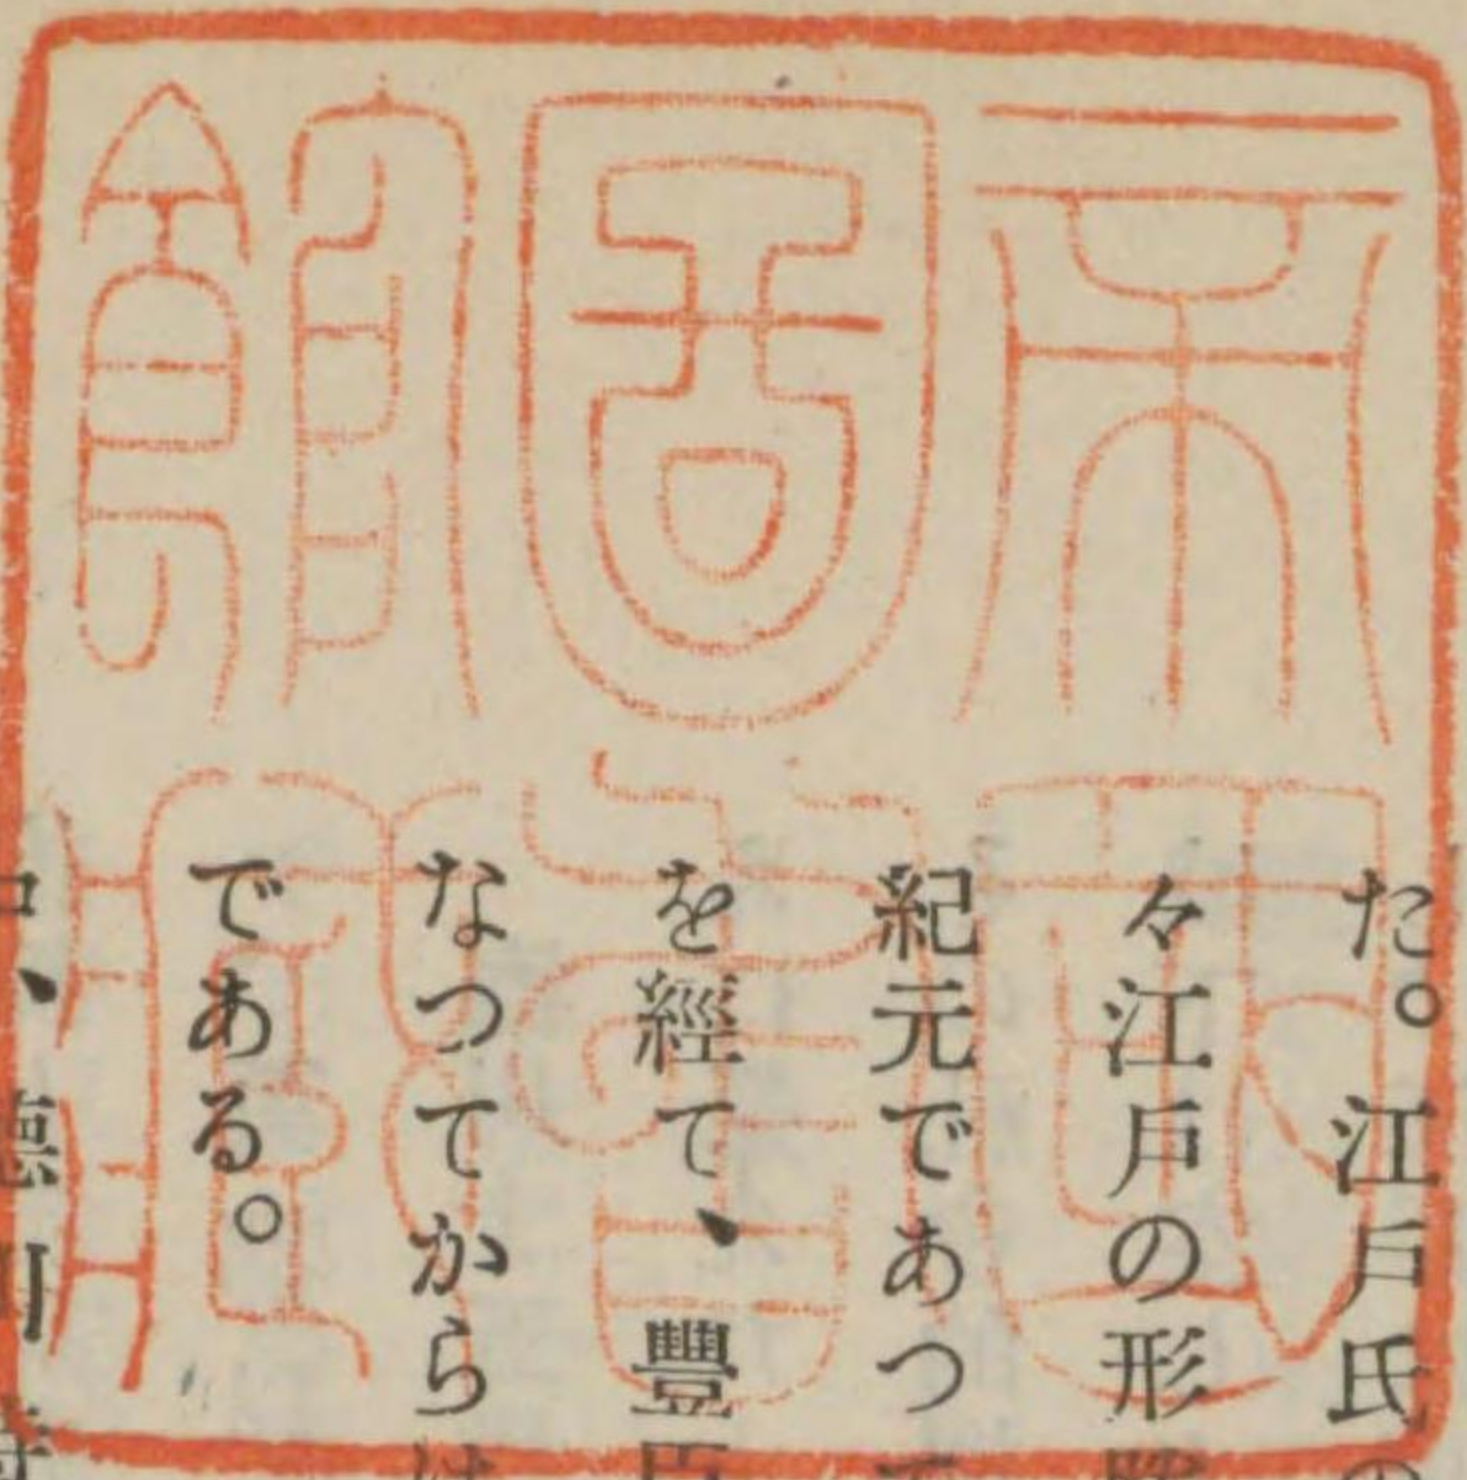 帝國
圖書
館藏
た。江戸氏の
々江戸の形
紀元であつ
を經て、豐臣
なつてからは
である。